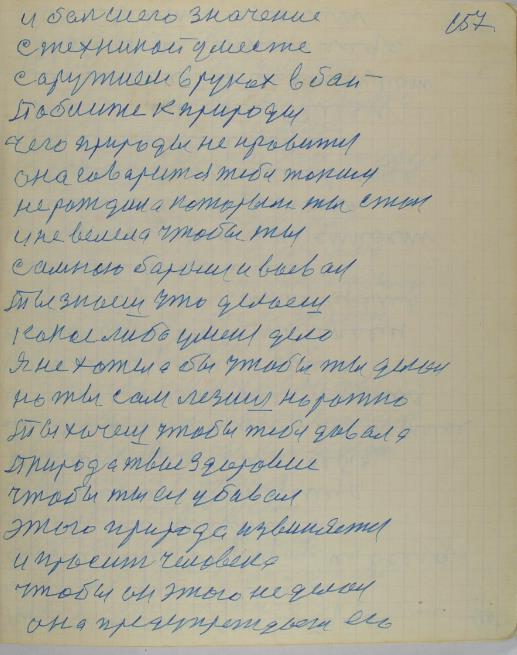 157
и большего значение
с техникой уместе
с аружием в руках в бай
Поближе к природы
чего природы не нравится
она говарит я тебя таким
не раждила которым ты стал
и не велела чтобы ты
самною баролся и воевал
Ты знаеш что делаеш
какое либо умея дело
Я не хотела бы чтобы ты делал
но ты сам лезиш на ражно
Ты хочеш чтобы тебя давала
Природа твое здоровие
чтобы ты ея убивал
этого природа извиняется
и просит человека
чтобы он этого не делал
она предупреждает его